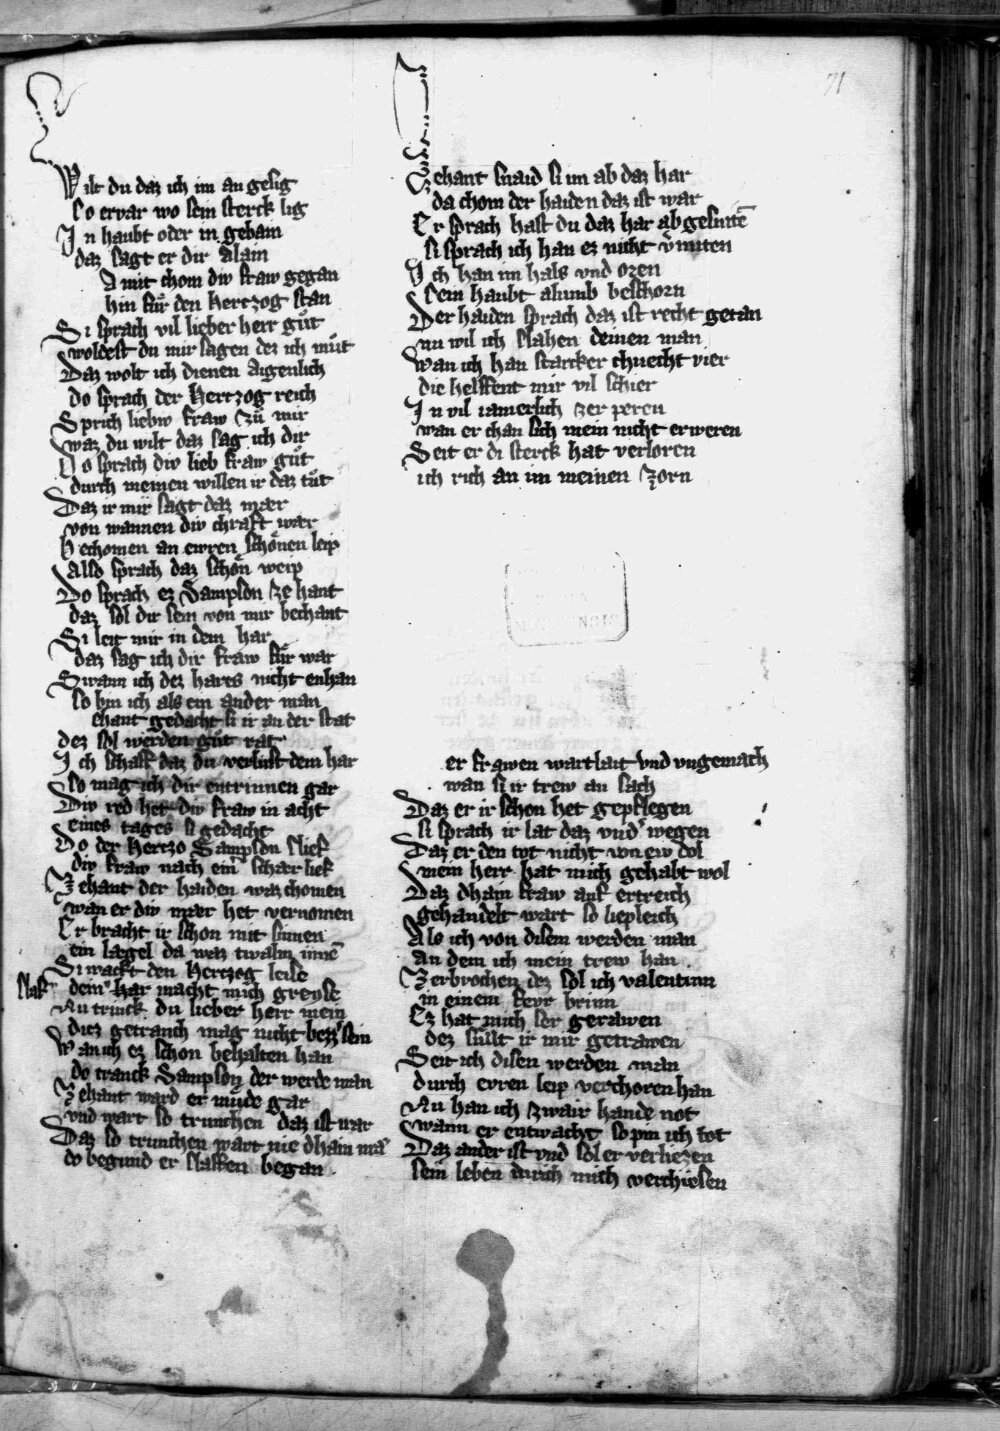 Wilt du daz ich im an gesig
so ervar wo sein sterck lig
In haubt oder in gebain
daz sagt er dir alain
A mit chom div fraw gegan
hin fur den Hertzog stan
Si sprach vil lieber herr gůt
woldest du mir sagen dez ich můt
Daz wolt ich dienen aigenlich
do sprach der Hertzog reich
Sprich liebiv fraw zů mir
waz du wilt daz sag ich dir
Do sprach div lieb fraw gůt
durch meinen willen ir daz tůt
Daz ir mir sagt daz mær
von wannen div chraft wær
Bechomen an ewren schönen leip
Also sprach daz schön weip
Do sprach ez Sampson ze hant
daz sol dir sein von mir bechant
Si leit mir in dem har
daz sag ich dir fraw für war
Swann ich dez hares nicht enhan
so bin ich als ein ander man
ehant gedacht si ir an der stat
dez sol werden gůt rat
Ich schaff daz du verlust dein har
so mag ich dir entrinnen gar
Div red het div fraw in acht
eines tages si gedacht
Do der Hertzo Sampson slief
div fraw nach eim schær lief
Zehant der haiden waz chomen
wan er div mær het vernomen
Er bracht ir schon mit sinnen
ein lægel da waz twalm inne
Si wackt den Hertzog leise
slaf dein har macht mich greyse
Nu trinck du lieber herr mein
diez getranch mag nicht bezzer sein
Wan ich ez schon behalten han
do tranck Sampson der werde man
Zehant ward er müde gar
vnd wart so trunchen daz ist war
Daz so trunchen wart nie dhain mā
do begund er slaffen began
Zehant snaid si im ab daz har
da chom der haiden daz ist war
Er sprach hast du daz har abgesnitē
si sprach ich han ez nicht v̄miten
Ich han im hals vnd oren
sein haubt alumb beschorn
Der haiden sprach daz ist recht getan
nu wil ich slahen deinen man
Wan ich han starcker chnecht vier
die helffent mir vil schier
In vil iamerlich zer peren
wan er chan sich mein nicht erweren
Seit er di sterck hat verloren
ich rich an im meinen zorn
er frawen wart lait vnd vngemach
wan si ir trew an sach
Daz er ir schon het gepflegen
si sprach ir lat daz vnd' wegen
Daz er den tot nicht von ew dol
mein herr hat mich gehabt wol
Daz dhain fraw auf ertreich
gehandelt wart so liepleich
Als ich von disem werden man
an dem ich mein trew han
Zerbrochen dez sol ich valentinn
in einem fewr brinn
Ez hat mich ser gerawen
dez sullt ir mir getrawen
Seit ich disen werden man
durch evren leip verchoren han
Nu han ich zwair hande not
wann er entwacht so pin ich tot
Daz ander ist vnd sol er verliezen
sein leben durch mich verchiesen
71